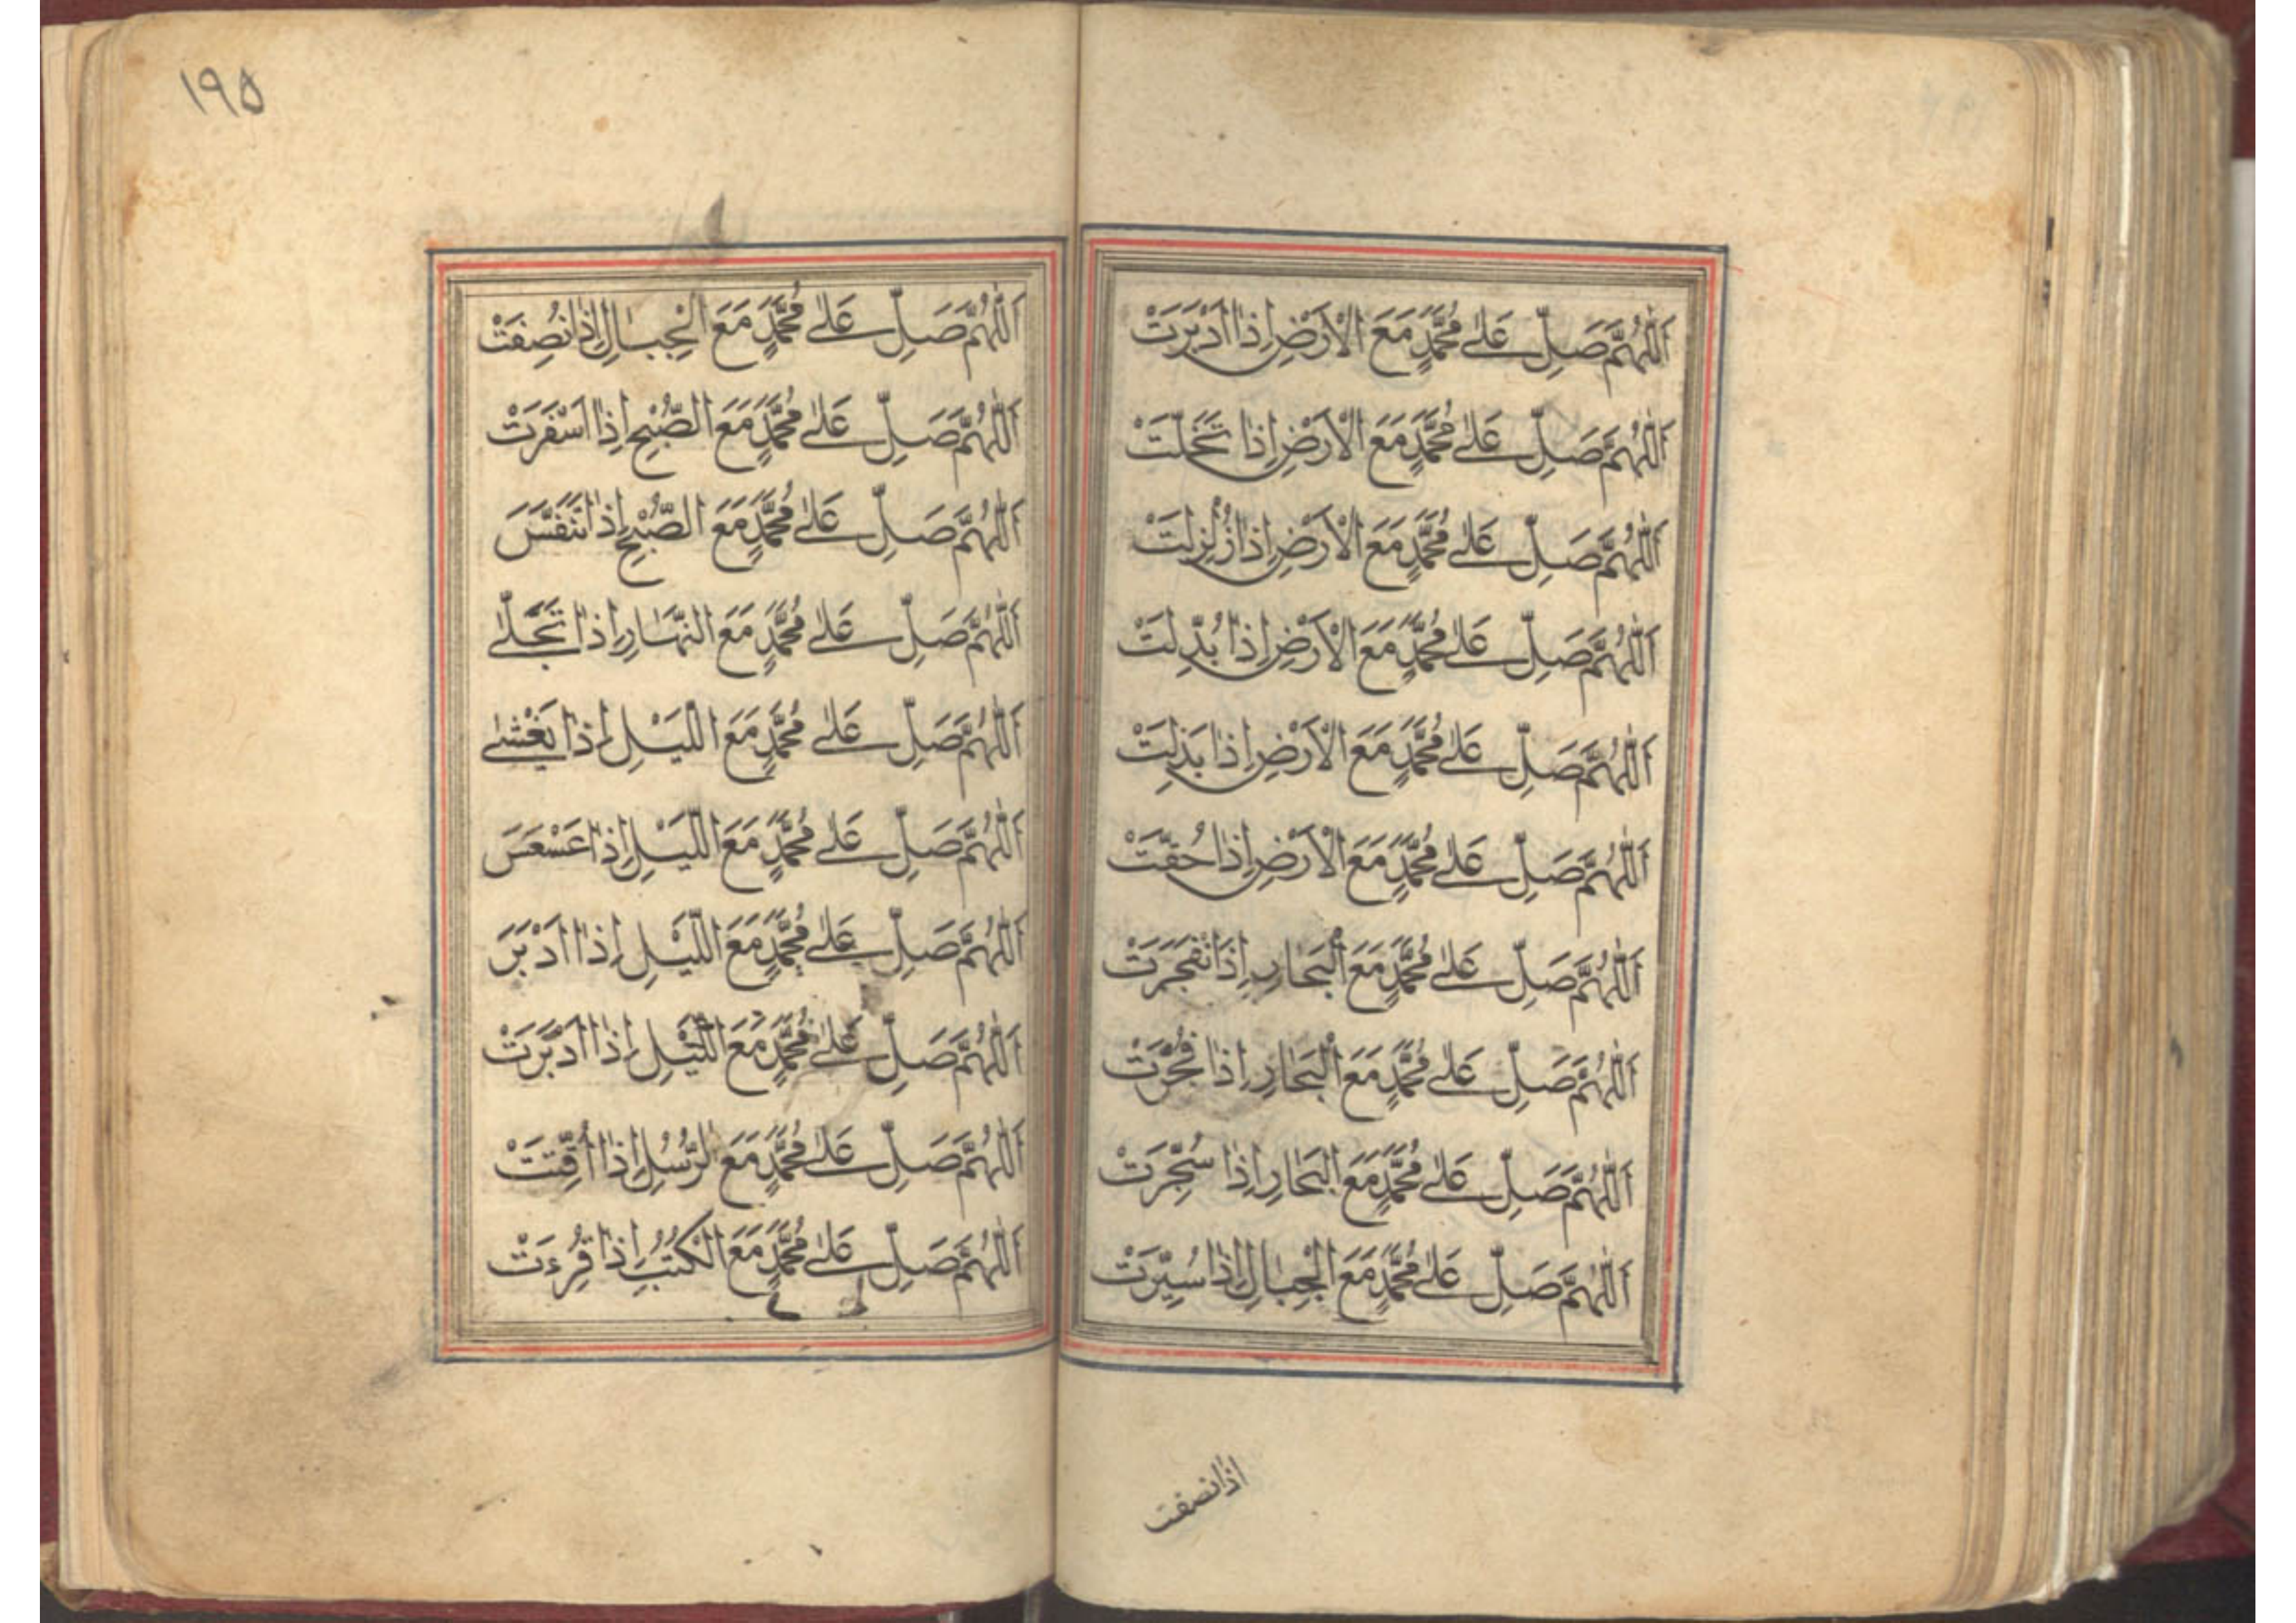 اَللّٰهُمَّ صَلِّ عَلٰى مُحَمَّدٍ مَعَ الْاَرْضِ اِذَا اَدْبَرَتْ
اَللّٰهُمَّ صَلِّ عَلٰى مُحَمَّدٍ مَعَ الْاَرْضِ اِذَا تَخَلَّتْ
اَللّٰهُمَّ صَلِّ عَلٰى مُحَمَّدٍ مَعَ الْاَرْضِ اِذَا زُلْزِلَتْ
اَللّٰهُمَّ صَلِّ عَلٰى مُحَمَّدٍ مَعَ الْاَرْضِ اِذَا بُدِّلَتْ
اَللّٰهُمَّ صَلِّ عَلٰى مُحَمَّدٍ مَعَ الْاَرْضِ اِذَا بَذِلَتْ
اَللّٰهُمَّ صَلِّ عَلٰى مُحَمَّدٍ مَعَ الْاَرْضِ اِذَا حُقَّتْ
اَللّٰهُمَّ صَلِّ عَلٰى مُحَمَّدٍ مَعَ الْبَحَارِ اِذَانْفَجَرَتْ
اَللّٰهُمَّ صَلِّ عَلٰى مُحَمَّدٍ مَعَ الْبَحَارِ اِذَا فُجِّرَتْ
اَللّٰهُمَّ صَلِّ عَلٰى مُحَمَّدٍ مَعَ الْبَحَارِ اِذَا سُجِّرَتْ
اَللّٰهُمَّ صَلِّ عَلٰى مُحَمَّدٍ مَعَ الْجِبَالِ اِذَا سُيِّرَتْ
اذا نصفت
١٩٥
اَللّٰهُمَّ صَلِّ عَلٰى مُحَمَّدٍ مَعَ الْجِبَالِ اِذَا نُصِفَتْ
اَللّٰهُمَّ صَلِّ عَلٰى مُحَمَّدٍ مَعَ الصُّبْحِ اِذَا اَسْفَرَتْ
اَللّٰهُمَّ صَلِّ عَلٰى مُحَمَّدٍ مَعَ الصُّبْحِ اِذَا تَنَفَّسَ
اَللّٰهُمَّ صَلِّ عَلٰى مُحَمَّدٍ مَعَ النَّهَارِ اِذَا تَجَلّٰى
اَللّٰهُمَّ صَلِّ عَلٰى مُحَمَّدٍ مَعَ الَّيْلِ اِذَا يَغْشٰى
اَللّٰهُمَّ صَلِّ عَلٰى مُحَمَّدٍ مَعَ الَّيْلِ اِذَا عَسْعَسَ
اَللّٰهُمَّ صَلِّ عَلٰى مُحَمَّدٍ مَعَ الَّيْلِ اِذَا اَدْبَرَ
اَللّٰهُمَّ صَلِّ عَلٰى مُحَمَّدٍ مَعَ الَّيْلِ اِذَا اَدْبَرَتْ
اَللّٰهُمَّ صَلِّ عَلٰى مُحَمَّدٍ مَعَ الرُّسُلِ اِذَا اُقِّتَتْ
اَللّٰهُمَّ صَلِّ عَلٰى مُحَمَّدٍ مَعَ الْكُتُبِ اِذَا قُرِءَتْ